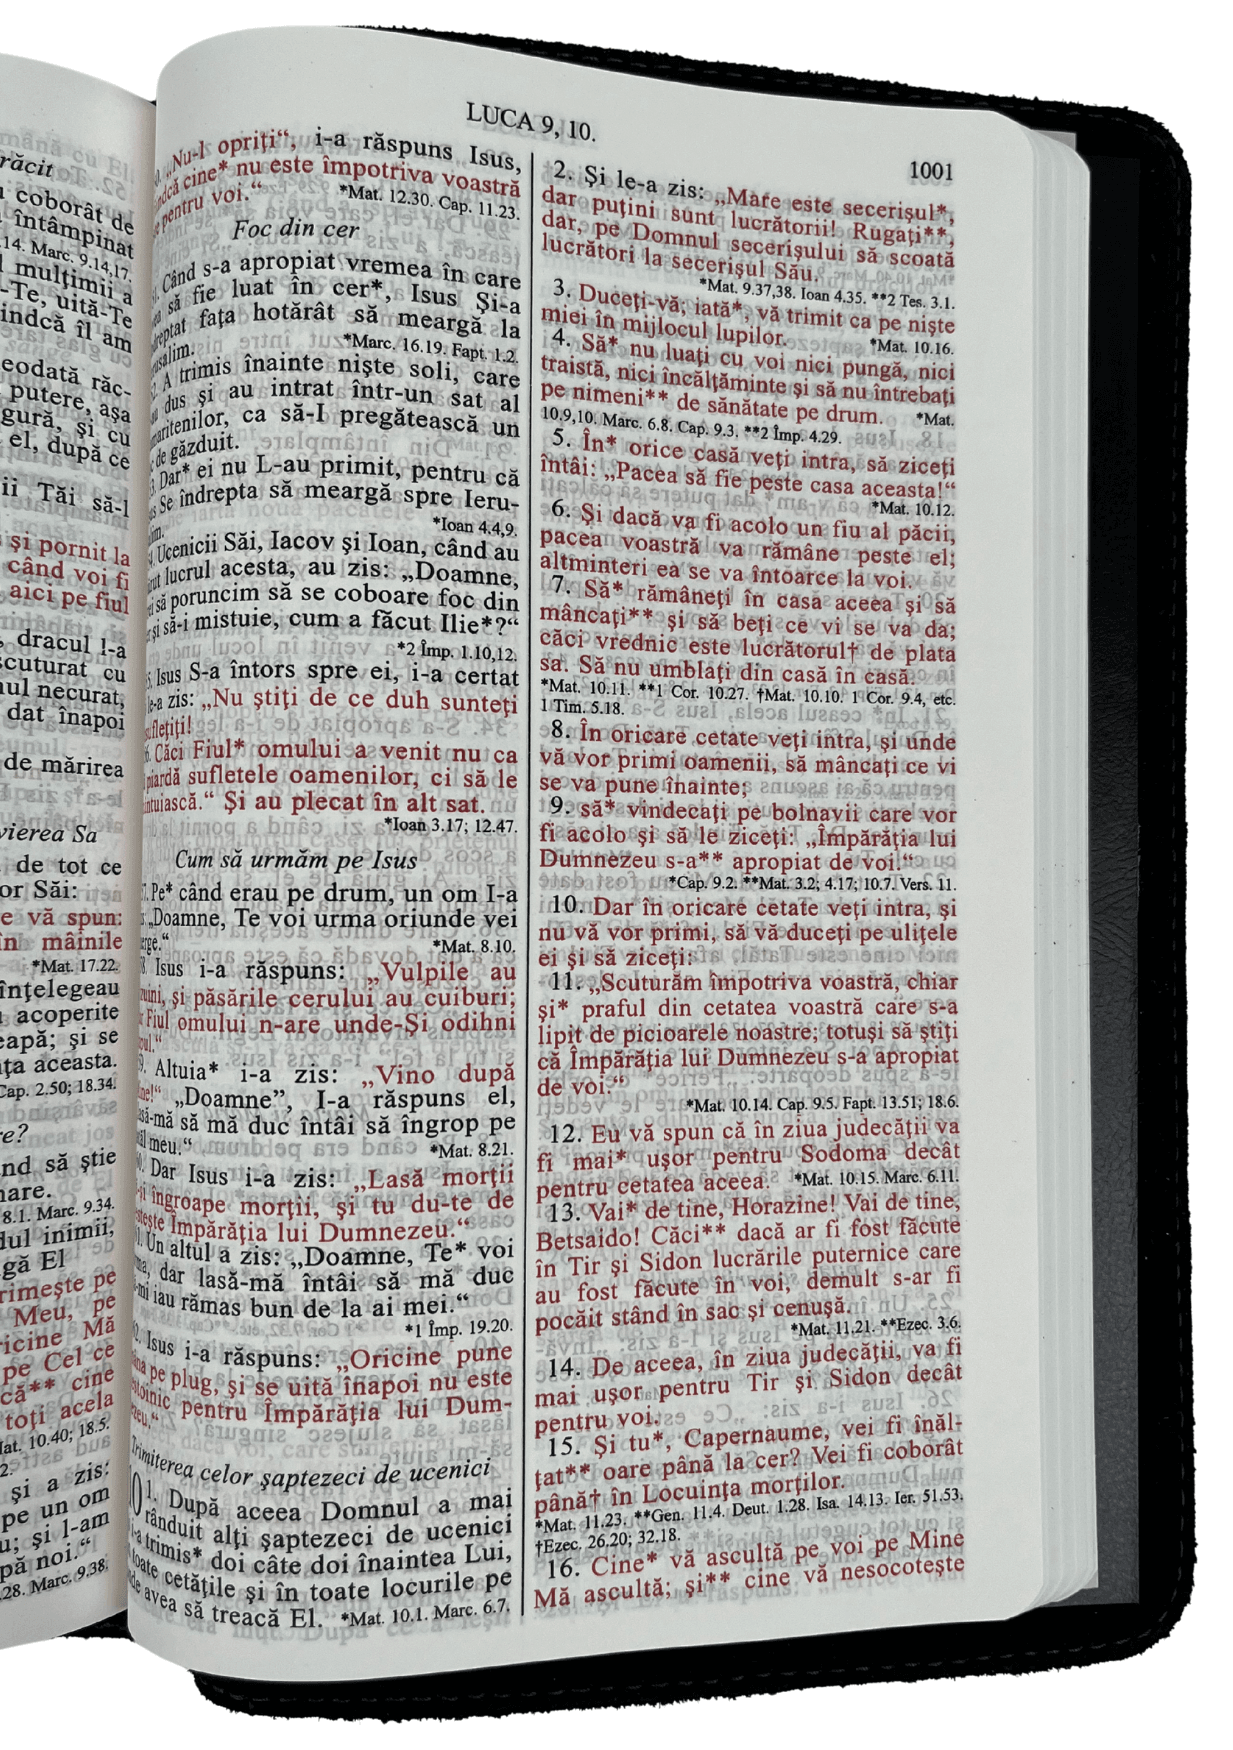 răcit
coborât de
întâmpinat
14. Marc. 9.14,17.
mulţimii a
-Te, uită-Te
indcă îl am
eodată răc-
putere, aşa
gură, şi cu
el, după ce
ii Tăi să-l
şi pornit la
când voi fi
aici pe fiul
dracul l-a
scuturat cu
necurat,
dat înapoi
de mărirea
vierea Sa
de tot ce
or Săi:
e vă spun:
în mâinile
*Mat. 17.22.
înţelegeau
acoperite
eapă; şi se
ţa aceasta.
Cap. 2.50; 18.34.
re?
nd să ştie
mare.
8.1. Marc. 9.34.
dul inimii,
gă El
rimeşte pe
Meu, pe
ricine Mă
pe Cel ce
că** cine
toţi acela
Mat. 10.40; 18.5.
şi a zis:
pe un om
u; şi l-am
pă noi.“
28. Marc. 9.38.
LUCA 9, 10.
1001
„Nu-l opriţi“, i-a răspuns Isus,
cine* nu este împotriva voastră
pentru voi.“ *Mat. 12.30. Cap. 11.23.
Foc din cer
Când s-a apropiat vremea în care
să fie luat în cer*, Isus Şi-a
faţa hotărât să meargă la
*Marc. 16.19. Fapt. 1.2.
A trimis înainte nişte soli, care
dus şi au intrat într-un sat al
ca să-I pregătească un
de găzduit.
Dar* ei nu L-au primit, pentru că
Se îndrepta să meargă spre Ieru-
*Ioan 4.4,9.
Ucenicii Săi, Iacov şi Ioan, când au
lucrul acesta, au zis: „Doamne,
să poruncim să se coboare foc din
şi să-i mistuie, cum a făcut Ilie*?“
*2 Împ. 1.10,12.
Isus S-a întors spre ei, i-a certat
zis: „Nu ştiţi de ce duh sunteţi
Căci Fiul* omului a venit nu ca
piardă sufletele oamenilor, ci să le
Şi au plecat în alt sat.
*Ioan 3.17; 12.47.
Cum să urmăm pe Isus
Pe* când erau pe drum, un om I-a
„Doamne, Te voi urma oriunde vei
*Mat. 8.10.
Isus i-a răspuns: „Vulpile au
şi păsările cerului au cuiburi;
Fiul omului n-are unde-Şi odihni
Altuia* i-a zis: „Vino după
„Doamne”, I-a răspuns el,
să mă duc întâi să îngrop pe
meu.“ *Mat. 8.21.
Dar Isus i-a zis: „Lasă morţii
îngroape morţii, şi tu du-te de
Împărăţia lui Dumnezeu.“
Un altul a zis: „Doamne, Te* voi
dar lasă-mă întâi să mă duc
iau rămas bun de la ai mei.“
*1 Împ. 19.20.
Isus i-a răspuns: „Oricine pune
pe plug, şi se uită înapoi nu este
pentru Împărăţia lui Dum-
Trimiterea celor şaptezeci de ucenici
1. După aceea Domnul a mai
rânduit alţi şaptezeci de ucenici
trimis* doi câte doi înaintea Lui,
toate cetăţile şi în toate locurile pe
avea să treacă El. *Mat. 10.1. Marc. 6.7.
2. Şi le-a zis: „Mare este secerişul*,
dar puţini sunt lucrătorii! Rugaţi**,
dar, pe Domnul secerişului să scoată
lucrători la secerişul Său.
*Mat. 9.37,38. Ioan 4.35. **2 Tes. 3.1.
3. Duceţi-vă; iată*, vă trimit ca pe nişte
miei în mijlocul lupilor. *Mat. 10.16.
4. Să* nu luaţi cu voi nici pungă, nici
traistă, nici încălţăminte şi să nu întrebaţi
pe nimeni** de sănătate pe drum. *Mat.
10.9,10. Marc. 6.8. Cap. 9.3. **2 Împ. 4.29.
5. În* orice casă veţi intra, să ziceţi
întâi: „Pacea să fie peste casa aceasta!“
*Mat. 10.12.
6. Şi dacă va fi acolo un fiu al păcii,
pacea voastră va rămâne peste el;
altminteri ea se va întoarce la voi.
7. Să* rămâneţi în casa aceea şi să
mâncaţi** şi să beţi ce vi se va da;
căci vrednic este lucrătorul† de plata
sa. Să nu umblaţi din casă în casă.
*Mat. 10.11. **1 Cor. 10.27. †Mat. 10.10. 1 Cor. 9.4, etc.
1 Tim. 5.18.
8. În oricare cetate veţi intra, şi unde
vă vor primi oamenii, să mâncaţi ce vi
se va pune înainte;
9. să* vindecaţi pe bolnavii care vor
fi acolo şi să le ziceţi: „Împărăţia lui
Dumnezeu s-a** apropiat de voi.“
*Cap. 9.2. **Mat. 3.2; 4.17; 10.7. Vers. 11.
10. Dar în oricare cetate veţi intra, şi
nu vă vor primi, să vă duceţi pe uliţele
ei şi să ziceţi:
11. „Scuturăm împotriva voastră, chiar
şi* praful din cetatea voastră care s-a
lipit de picioarele noastre; totuşi să ştiţi
că Împărăţia lui Dumnezeu s-a apropiat
de voi.“
*Mat. 10.14. Cap. 9.5. Fapt. 13.51; 18.6.
12. Eu vă spun că în ziua judecăţii va
fi mai* uşor pentru Sodoma decât
pentru cetatea aceea. *Mat. 10.15. Marc. 6.11.
13. Vai* de tine, Horazine! Vai de tine,
Betsaido! Căci** dacă ar fi fost făcute
în Tir şi Sidon lucrările puternice care
au fost făcute în voi, demult s-ar fi
pocăit stând în sac şi cenuşă.
*Mat. 11.21. **Ezec. 3.6.
14. De aceea, în ziua judecăţii, va fi
mai uşor pentru Tir şi Sidon decât
pentru voi.
15. Şi tu*, Capernaume, vei fi înăl-
ţat** oare până la cer? Vei fi coborât
până† în Locuinţa morţilor.
*Mat. 11.23. **Gen. 11.4. Deut. 1.28. Isa. 14.13. Ier. 51.53.
†Ezec. 26.20; 32.18.
16. Cine* vă ascultă pe voi pe Mine
Mă ascultă; şi** cine vă nesocoteşte